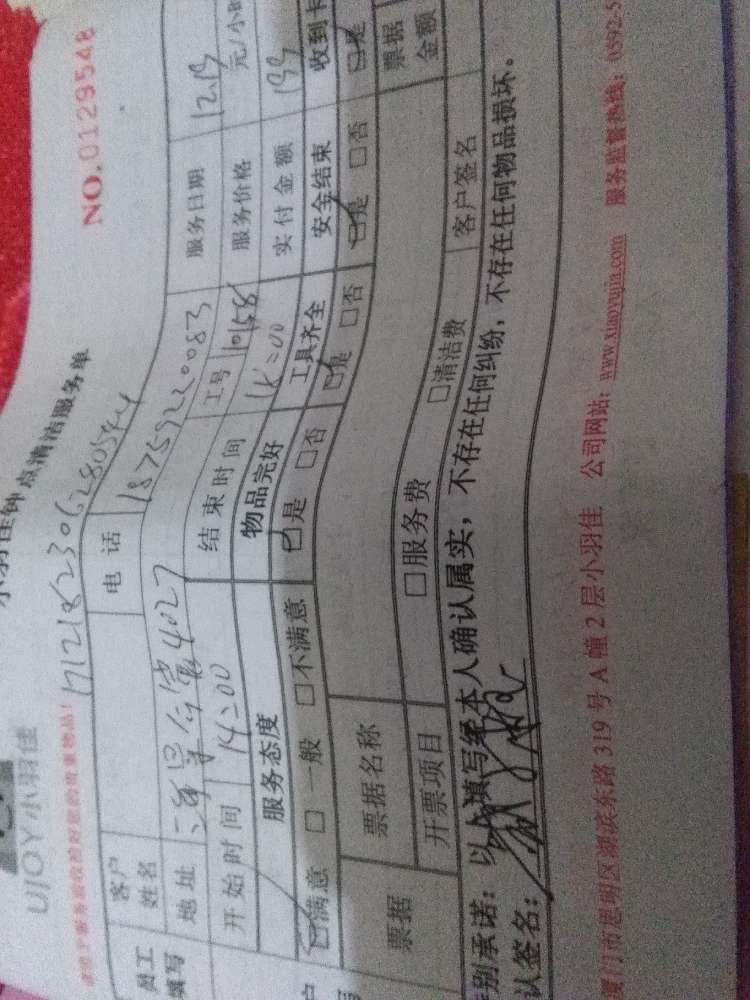 UJOY小羽佳
小羽佳钟点清洁服务单
NO.0129548
1712182306280544
员工
填写
客户
姓名
电话
18759220083
服务日期
12.19
地址
4027
工号
10158
服务价格
元/小时
开始时间
14:00
结束时间
18:00
实付金额
199
服务态度
物品完好
工具齐全
安全结束
收到卡
☑满意 □一般 □不满意
☑是 □否
☑是 □否
☑是 □否
☑是
票据
票据名称
票据
金额
开票项目
□服务费 □清洁费
客户签名
特别承诺：以上填写经本人确认属实，不存在任何纠纷，不存在任何物品损坏。
确认签名：
厦门市思明区湖滨东路319号A幢2层小羽佳 公司网站：www.xiaoyujia.com 服务监督热线：0592-5